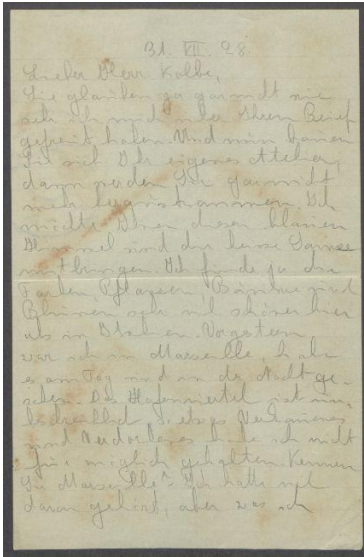 31. VII. 28.
Lieber Herr Kolbe,
Sie glauben ja gar nicht wie
sehr ich mich über Ihren Brief
gefreut habe. Und nun bauen
Sie sich Ihr eigenes Atelier,
dann werden Sie gar nicht
mehr herauskommen. Ich
möchte Ihnen diesen blauen
Himmel und die heisse Sonne
mitbringen. Ich finde ja die
Farben, Pflanzen, Bäume und
Blumen sehr viel schöner hier
als in Italien. Vorgestern
war ich in Marseille, habe
es am Tag und in der Nacht ge-
sehen. Das Hafenviertel ist un-
beschreiblich. So etwas
und Verdorbenes habe ich nicht
für möglich gehalten. Kennen
Sie Marseille? Ich hatte viel
davon gehört, aber was ich